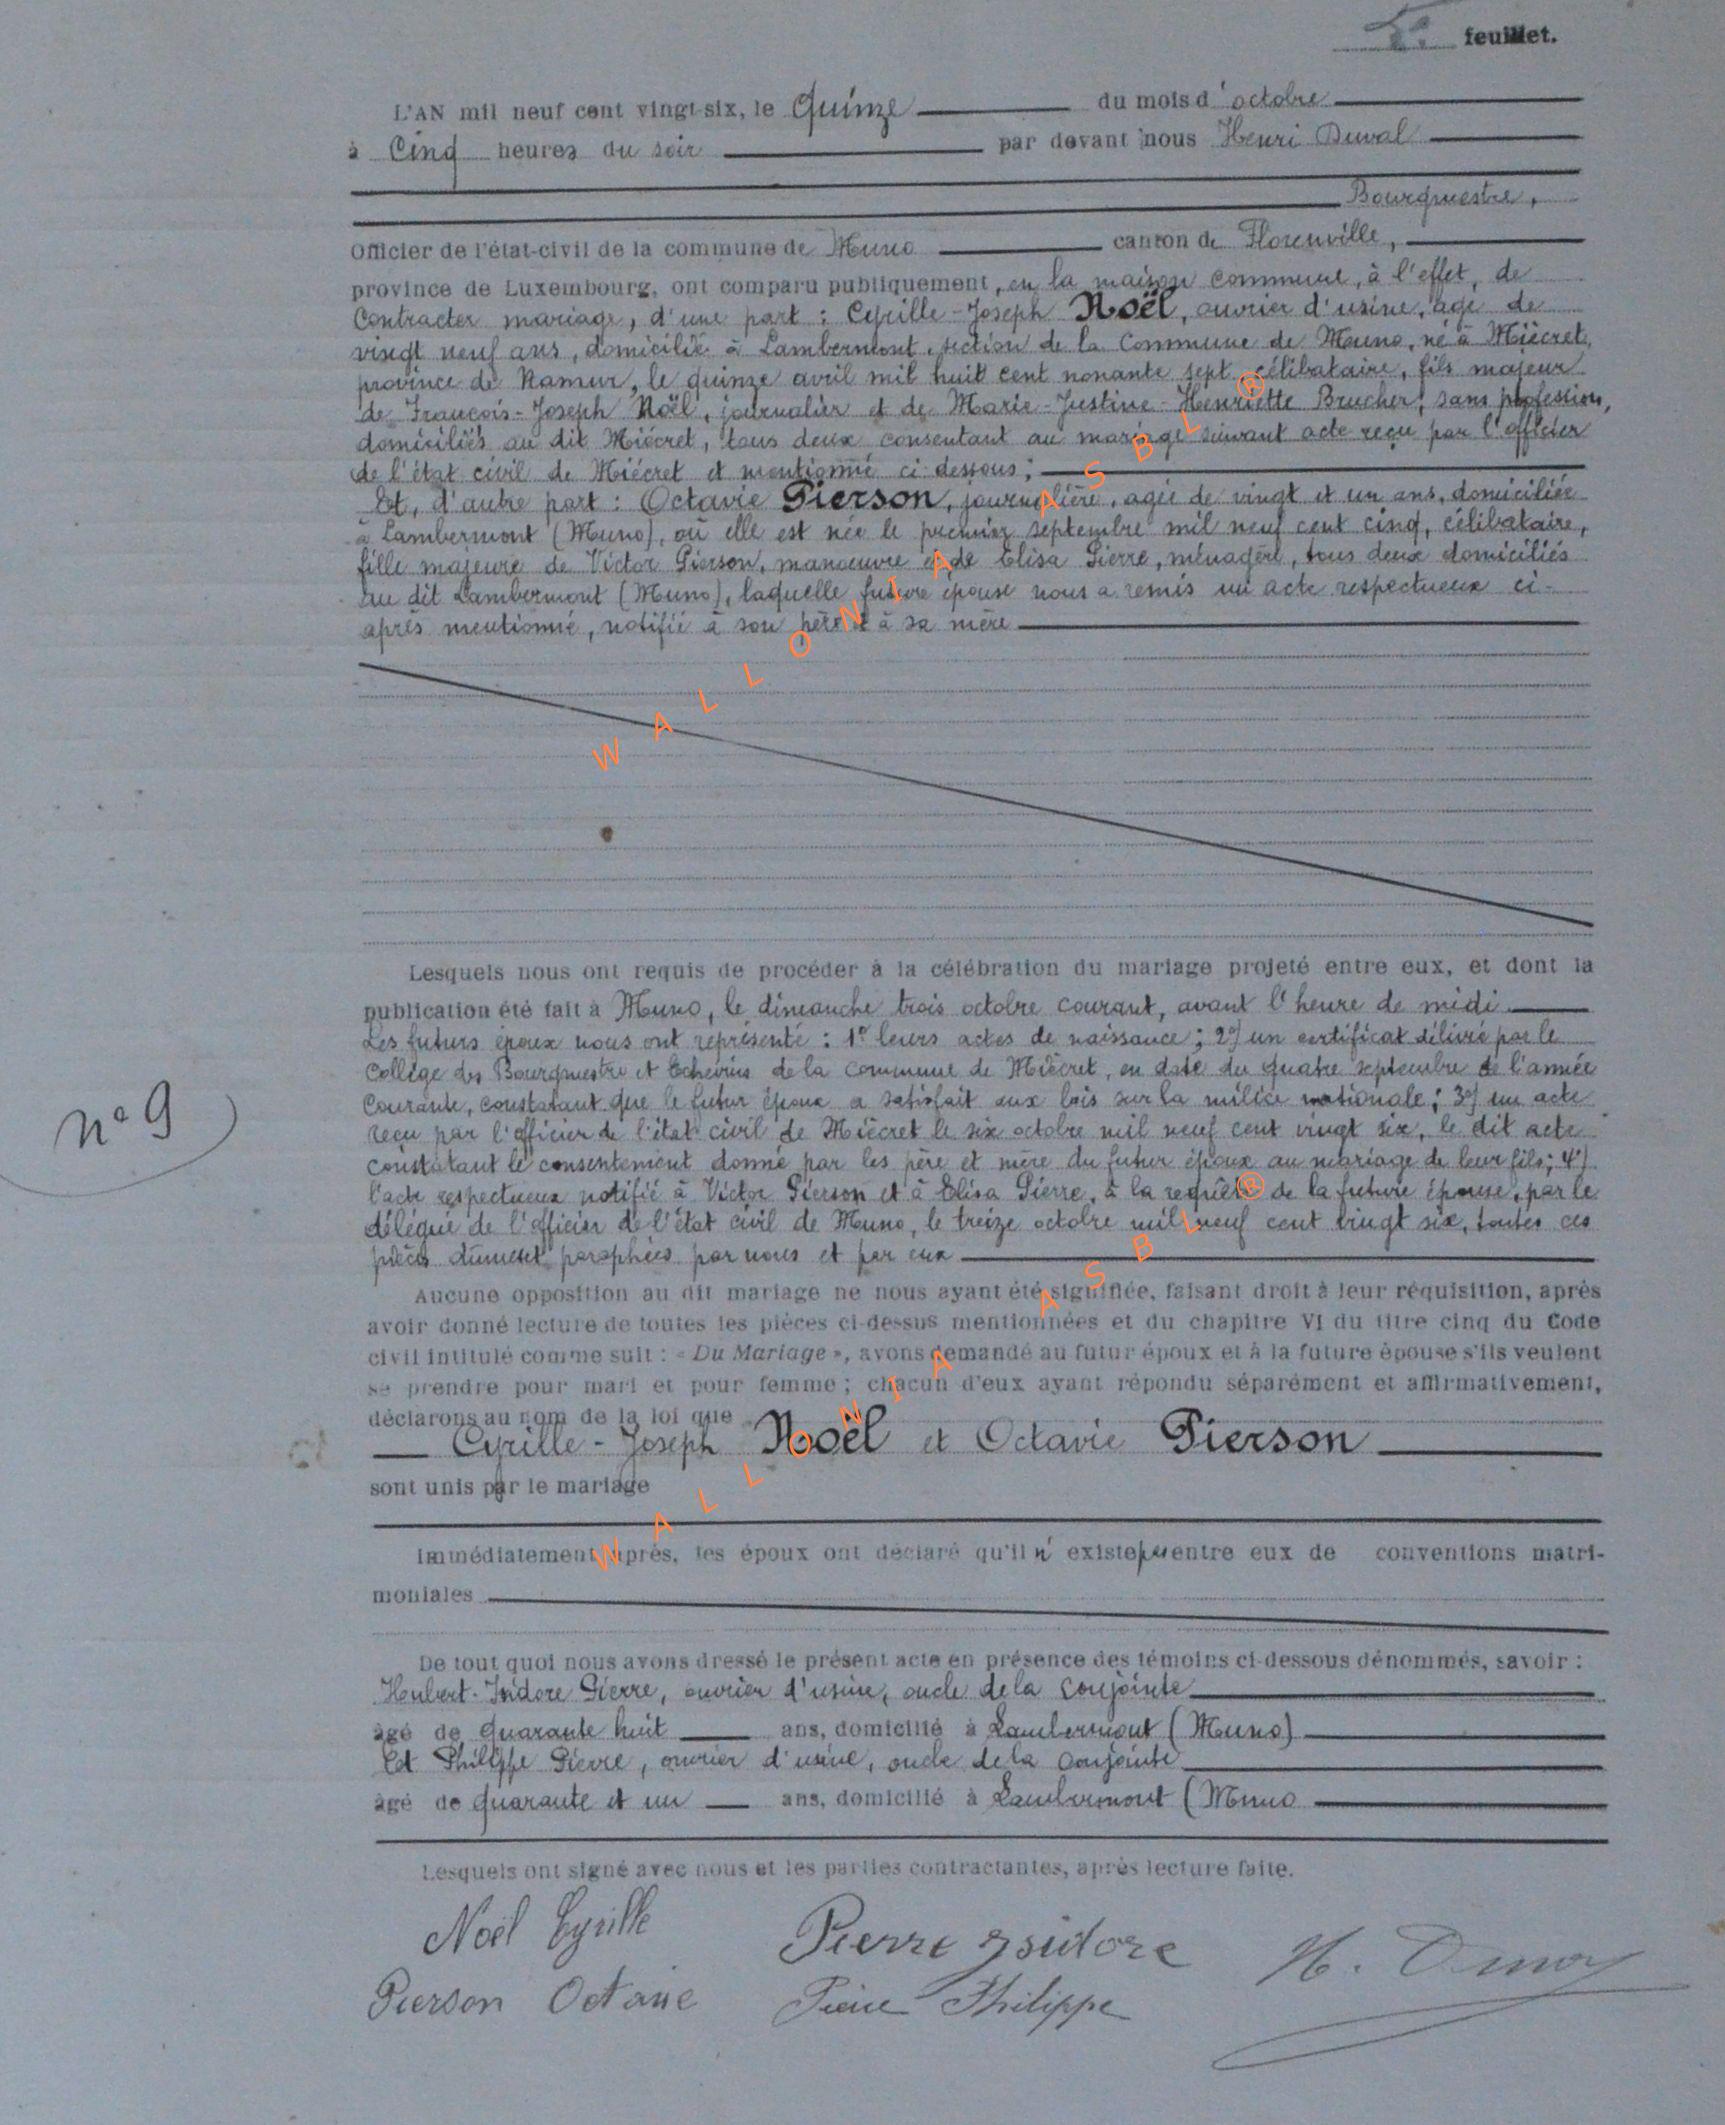 5e. feuillet.
L'AN mil neuf cent vingt-six, le Quinze du mois d'octobre
à Cinq heures du soir par devant nous Henri Duval
Bourgmestre,
Officier de l'état-civil de la commune de Muno canton de Florenville,
province de Luxembourg, ont comparu publiquement, en la maison commune, à l'effet, de
Contracter mariage, d'une part : Cyrille-Joseph Noël, ouvrier d'usine, âgé de
vingt neuf ans, domicilié à Lambermont, section de la Commune de Muno, né à Miécret,
province de Namur, le quinze avril mil huit cent nonante sept, célibataire, fils majeur
de François-Joseph Noël, journalier et de Marie-Justine-Henriette Brucher, sans profession,
domiciliés au dit Miécret, tous deux consentant au mariage suivant acte reçu par l'officier
de l'état civil de Miécret et mentionné ci-dessous ;
Et, d'autre part : Octavie Pierson, journalière, agée de vingt et un ans, domiciliée
à Lambermont (Muno), où elle est née le premier septembre mil neuf cent cinq, célibataire,
fille majeure de Victor Pierson, manœuvre et de Elisa Pierre, ménagère, tous deux domiciliés
au dit Lambermont (Muno), laquelle future épouse nous a remis un acte respectueux ci-
après mentionné, notifié à son père et à sa mère
Lesquels nous ont requis de procéder à la célébration du mariage projeté entre eux, et dont la
publication été fait à Muno, le dimanche trois octobre courant, avant l'heure de midi.
Les futurs époux nous ont représenté : 1° leurs actes de naissance ; 2°) un certificat délivré par le
Collège des Bourgmestre et Echevins de la Commune de Miécret, en date du quatre septembre de l'année
Courante, constatant que le futur époux a satisfait aux lois sur la milice nationale ; 3°) un acte
reçu par l'officier de l'état civil de Miécret le six octobre mil neuf cent vingt six, le dit acte
constatant le consentement donné par les père et mère du futur époux au mariage de leur fils ; 4°)
l'acte respectueux notifié à Victor Pierson et à Elisa Pierre, à la requête de la future épouse, par le
délégué de l'officier de l'état civil de Muno, le treize octobre mil neuf cent vingt six, toutes ces
pièces dûment paraphées par nous et par eux
Aucune opposition au dit mariage ne nous ayant été signifiée, faisant droit à leur réquisition, après
avoir donné lecture de toutes les pièces ci-dessus mentionnées et du chapitre VI du titre cinq du Code
civil intitulé comme suit : « Du Mariage », avons demandé au futur époux et à la future épouse s'ils veulent
se prendre pour mari et pour femme ; chacun d'eux ayant répondu séparément et affirmativement,
déclarons au nom de la loi que
Cyrille-Joseph Noël et Octavie Pierson
sont unis par le mariage
n° 9
Immédiatement après, les époux ont déclaré qu'il n'existe pas entre eux de conventions matri-
moniales
De tout quoi nous avons dressé le présent acte en présence des témoins ci-dessous dénommés, savoir :
Hubert-Isidore Pierre, ouvrier d'usine, oncle de la conjointe
âgé de quarante huit ans, domicilié à Lambermont (Muno)
Et Philippe Pierre, ouvrier d'usine, oncle de la conjointe
âgé de quarante et un ans, domicilié à Lambermont (Muno
Lesquels ont signé avec nous et les parties contractantes, après lecture faite.
Noël Cyrille Pierre Isidore H. Duval
Pierson Octavie Pierre Philippe
WALLONIA ASBL ®
WALLONIA ASBL ®